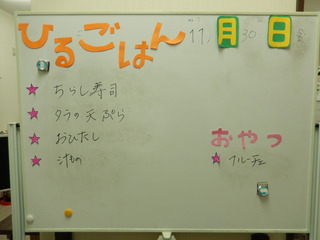 ひるごはん 11月30日
ちらし寿司
タラの天ぷら
おひたし
汁もの
おやつ
フルーチェ